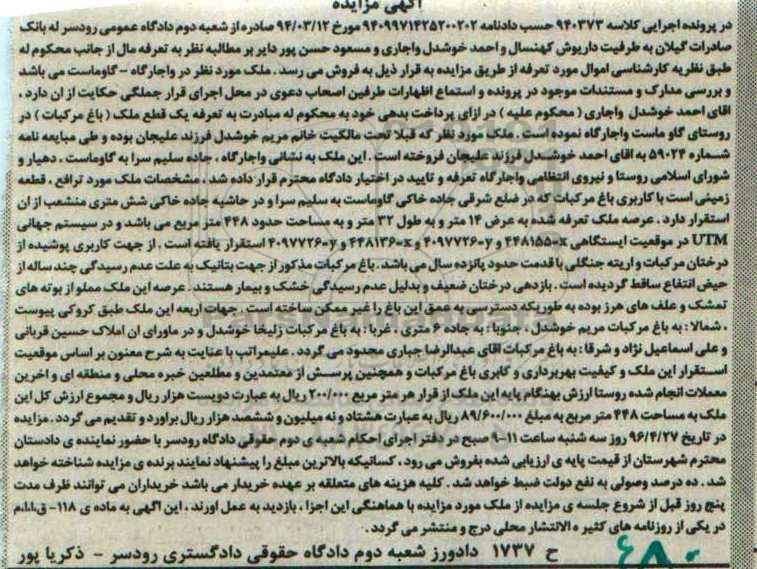 آگهی مزایده
در پرونده اجرایی کلاسه ۹۴۰۳۷۳ حسب دادنامه ۹۴۰۹۹۷۱۴۲۵۲۰۰۲۰۲ مورخ ۹۴/۰۳/۱۲ صادره از شعبه دوم دادگاه عمومی رودسر له بانک
صادرات گیلان به طرفیت داریوش کهنسال و احمد خوشدل واجاری و مسعود حسن پور دایر بر مطالبه نظر به تعرفه مال از جانب محکوم له
طبق نظریه کارشناسی اموال مورد تعرفه از طریق مزایده به قرار ذیل به فروش می رسد . ملک مورد نظر در واجارگاه - گاوماست می باشد
و بررسی مدارک و مستندات موجود در پرونده و استماع اظهارات طرفین اصحاب دعوی در محل اجرای قرار جملگی حکایت از ان دارد ،
اقای احمد خوشدل واجاری ( محکوم علیه ) در ازای پرداخت بدهی خود به محکوم له مبادرت به تعرفه یک قطع ملک ( باغ مرکبات ) در
روستای گاو ماست واجارگاه نموده است . ملک مورد نظر که قبلا تحت مالکیت خانم مریم خوشدل فرزند علیجان بوده و طی مبایعه نامه
شماره ۵۹۰۲۴ به اقای احمد خوشدل فرزند علیجان فروخته است . این ملک به نشانی واجارگاه ، جاده سلیم سرا به گاوماست ، دهیار و
شورای اسلامی روستا و نیروی انتظامی واجارگاه تعرفه و تایید در اختیار دادگاه محترم قرار داده شد . مشخصات ملک مورد ترافع ، قطعه
زمینی است با کاربری باغ مرکبات که در ضلع شرقی جاده خاکی گاوماست به سلیم سرا و در حاشیه جاده خاکی شش متری منشعب از ان
استقرار دارد . عرصه ملک تعرفه شده به عرض ۱۴ متر و به طول ۳۲ متر و به مساحت حدود ۴۴۸ متر مربع می باشد و در سیستم جهانی
UTM در موقعیت ایستگاهی x=۴۴۸۱۵۵ و y=۴۰۹۷۷۲۶ و x=۴۴۸۱۳۶ و y=۴۰۹۷۷۲۶ استقرار یافته است . از جهت کاربری پوشیده از
درختان مرکبات و اریته جنگلی با قدمت حدود پانزده سال می باشد . باغ مرکبات مذکور از جهت بتانیک به علت عدم رسیدگی چند ساله از
حیض انتفاع ساقط گردیده است . بازدهی درختان ضعیف و بدلیل عدم رسیدگی خشک و بیمار هستند . عرصه این ملک مملو از بوته های
تمشک و علف های هرز بوده به طوریکه دسترسی به عمق این باغ را غیر ممکن ساخته است . جهات اربعه این ملک طبق کروکی پیوست
، شمالا : به باغ مرکبات مریم خوشدل ، جنوبا : به جاده ۶ متری ، غربا : به باغ مرکبات زلیخا خوشدل و در ماورای ان املاک حسین قربانی
و علی اسماعیل نژاد و شرقا : به باغ مرکبات اقای عبدالرضا جباری محدود می گردد . علیمراتب با عنایت به شرح معنون بر اساس موقعیت
استقرار این ملک و کیفیت بهربرداری و کابری باغ مرکبات و همچنین پرسش از معتمدین و مطلعین خبره محلی و منطقه ای و اخرین
معملات انجام شده روستا ارزش بهنگام پایه این ملک از قرار هر متر مربع ۲۰۰/۰۰۰ ریال به عبارت دویست هزار ریال و مجموع ارزش کل این
ملک به مساحت ۴۴۸ متر مربع به مبلغ ۸۹/۶۰۰/۰۰۰ ریال به عبارت هشتاد و نه میلیون و ششصد هزار ریال براورد و تقدیم می گردد . مزایده
در تاریخ ۹۶/۴/۲۷ روز سه شنبه ساعت ۱۱-۹ صبح در دفتر اجرای احکام شعبه ی دوم حقوقی دادگاه رودسر با حضور نماینده ی دادستان
محترم شهرستان از قیمت پایه ی ارزیابی شده بفروش می رود ، کسانیکه بالاترین مبلغ را پیشنهاد نمایند برنده ی مزایده شناخته خواهد
شد . ده درصد وصولی به نفع دولت ضبط خواهد شد . کلیه هزینه های متعلقه بر عهده خریدار می باشد خریداران می توانند ظرف مدت
پنج روز قبل از شروع جلسه ی مزایده از ملک مورد مزایده با هماهنگی این اجرا ، بازدید به عمل اورند ، این اگهی به ماده ی ۱۱۸- ق.ا.ا.م
در یکی از روزنامه های کثیر ه الانتشار محلی درج و منتشر می گردد .
ح ۱۷۳۷ دادورز شعبه دوم دادگاه حقوقی دادگستری رودسر - ذکریا پور
۶۸۰